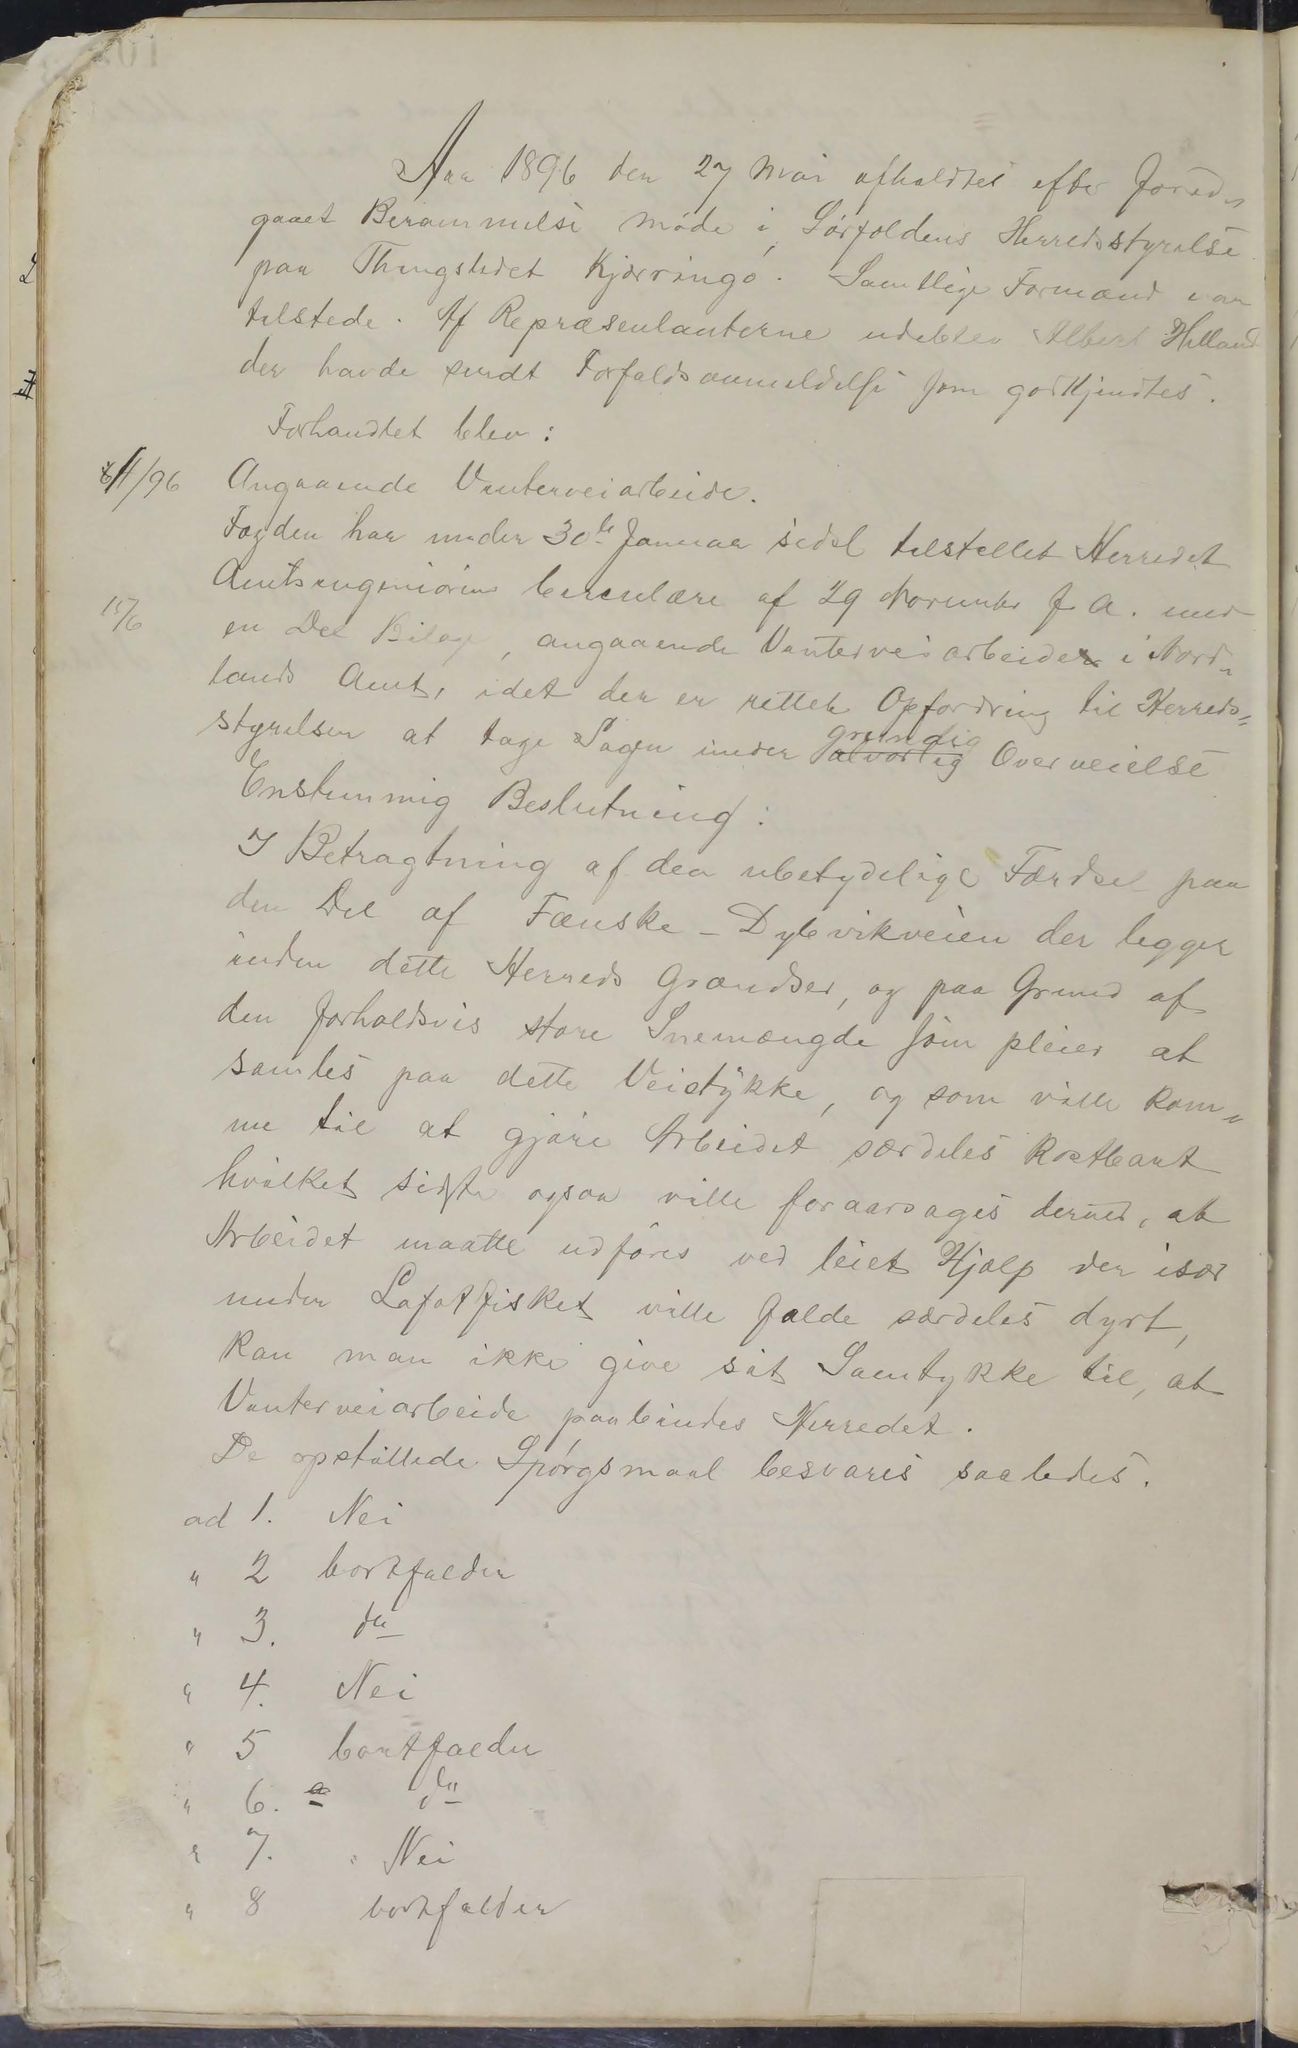 Aar 1896 den 27 Mai afholdtes efter forud„
gaaet Berammelse Møde i Sørfoldens Herredsstyrelse
paa Thingstedet Kjærringø. Samtlige Formænd var
tilstede. Af Repræsentanterne udeblev Albert Helland
der havde sendt Forfaldsanmeldelse som godkjendtes.
Forhandlet blev:
11/96 Angaaende Vinterveiarbeide.
Fogden har under 30te Januar sidst tilstillet Herredet
Amtsingeniørens Circulære af 29 November f. A. med
15/6
en Del Bilage, angaaende Vinterveiarbeider i Nord„
lands Amt, idet der er rettet Opfordring til Herreds=
styrelsen at tage Sagen under alvorlig grundig Overveielse
Enstemmig Beslutning:
I Betragtning af den ubetydelige Færdsel paa
den Del af Fauske - Dybvikveien der ligger
inden dette Herreds Grændser, og paa Grund af
den forholdsvis store Snemængde som pleier at
samles paa dette Veistykke, og som ville kom„
me til at gjøre Arbeidet særdeles kostbart
hvilket sidste ogsaa ville foraarsages derved, at
Arbeidet maatte udføres ved leiet Hjælp der især
under Lofotfisket ville falde særdeles dyrt,
kan man ikke give sit Samtykke til, at
Vinterveiarbeide paabindes Herredet.
De opstillede Spørgsmaal besvares saaledes.
ad 1. Nei
" 2 bortfalder
" 3. do
" 4. Nei
" 5 bortfalder
" 6. a do
" 7. Nei
" 8 bortfalder